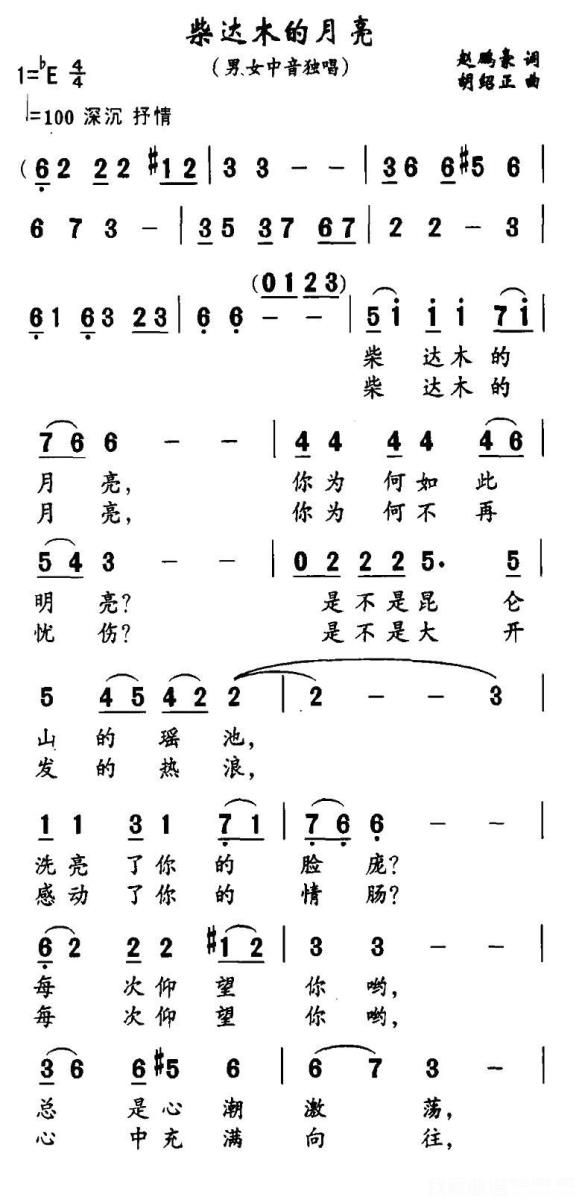 柴达木的月亮
(男、女中音独唱)
赵鹏豪 词
胡绍正 曲
1=♭E 4/4
♩=100 深沉 抒情
(6̣2 22 #12 | 33 - - | 36 6#5 6 |
6 7 3 - | 35 37 67 | 2 2 - 3 |
(0123)
6̣1 6̣3 23 | 6̣ 6̣ - - | 5i i i 7i |
柴 达木的
柴 达木的
76 6 - - | 44 44 46 |
月 亮, 你为 何如 此
月 亮, 你为 何不 再
54 3 - - | 02 22 5. 5 |
明 亮? 是不是昆 仑
忧 伤? 是不是大 开
5 45 42 2 | 2 - - 3 |
山 的 瑶 池,
发 的 热 浪,
11 31 7̣1 | 7̣6̣ 6̣ - - |
洗亮 了你 的 脸 庞?
感动 了你 的 情 肠?
6̣2 22 #12 | 3 3 - - |
每 次仰 望 你 哟,
每 次仰 望 你 哟,
36 6#5 6 | 6 7 3 - |
总 是心 潮 激 荡,
心 中充 满 向 往,